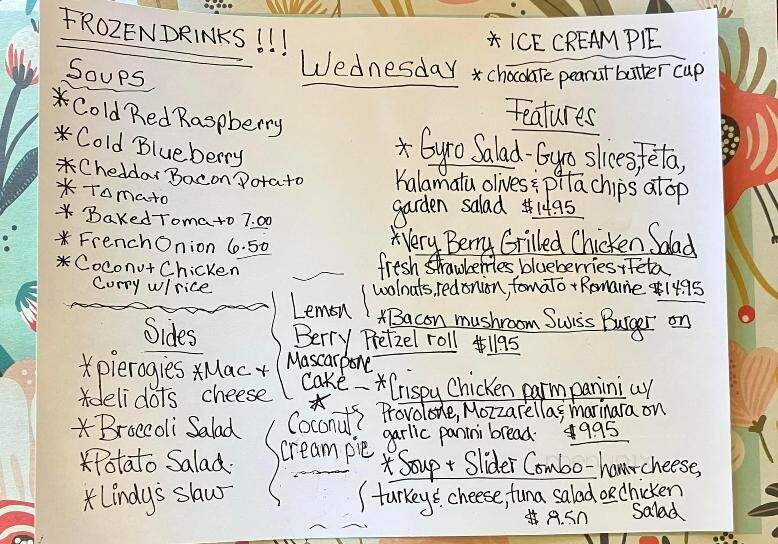 FROZEN DRINKS !!!
Wednesday
Soups
* Cold Red Raspberry
* Cold Blueberry
* Cheddar Bacon Potato
* Tomato
* Baked Tomato 7.00
* French Onion 6.50
* Coconut Chicken
Curry w/rice
Sides
* pierogies * Mac +
cheese
* deli dots
* Broccoli Salad
* Potato Salad.
* Lindy's slaw
Lemon
Berry
Mascarpone
Cake
*
Coconut
cream pie
* ICE CREAM PIE
* chocolate peanut butter cup
Features
* Gyro Salad - Gyro slices, Feta,
Kalamata olives & pita chips atop
garden salad $14.95
* Very Berry Grilled Chicken Salad
fresh strawberries blueberries + Feta
walnuts, red onion, tomato + Romaine $14.95
* Bacon mushroom Swiss Burger on
Pretzel roll $11.95
* Crispy Chicken parm panini w/
Provolone, Mozzarella & marinara on
garlic panini bread. $9.95
* Soup + Slider Combo - ham + cheese,
turkey & cheese, tuna salad or chicken
Salad
$8.50